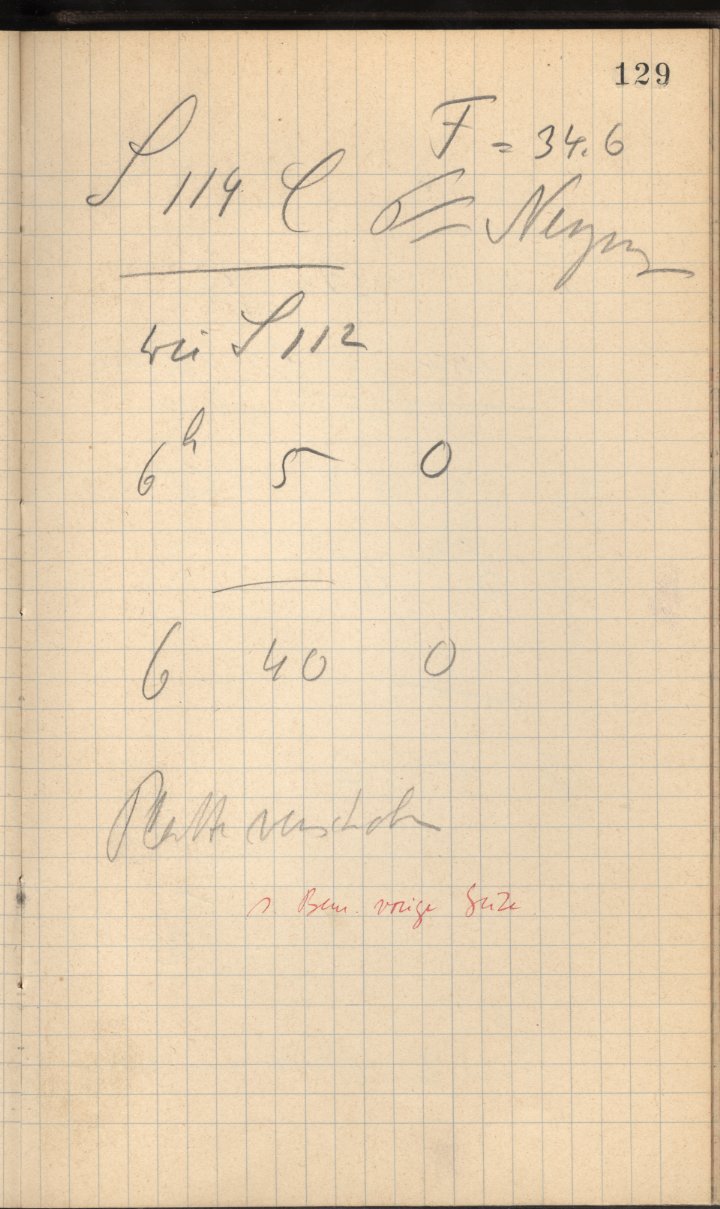 129
F = 34.6
S 114
wie S 112
6h 5 0
6 40 0
Platte verschoben
s Bem. vorige Seite